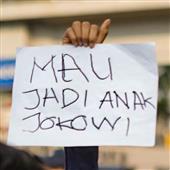 MAU
JADI ANAK
JOKOWI